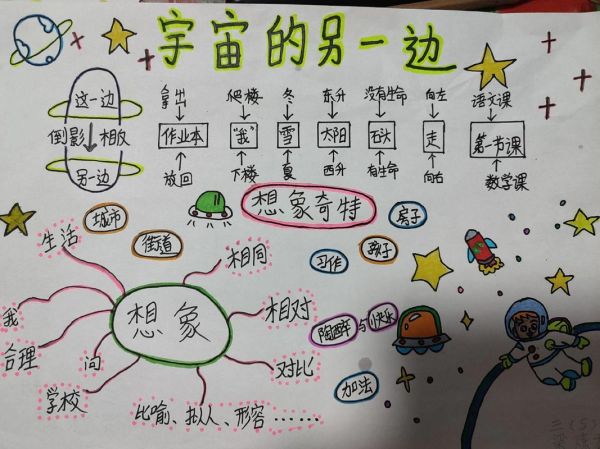 宇宙的另一边
这一边
倒影 相反
另一边
拿出 爬楼 冬 东升 没有生命 向左 语文课
作业本 "我" 雪 太阳 石头 走 第一节课
放回 下楼 夏 西升 有生命 向右 数学课
想象奇特
城市
街道
房子
习作
孩子
陶醉与快乐
加法
想象
生活
我
合理
问
学校
相同
相对
对比
比喻、拟人、形容……
三(5)